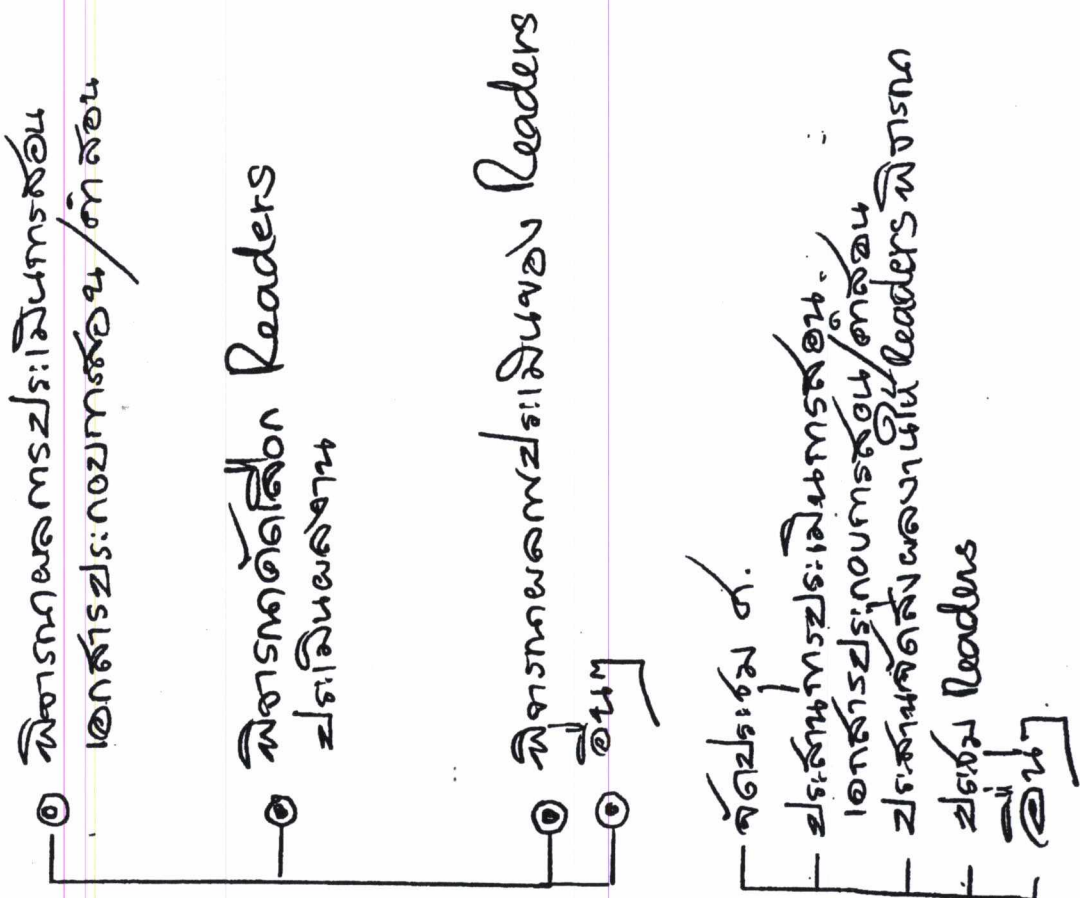 พิจารณาผลการประเมินการสอน
เอกสารประกอบการสอน/คำสอน
พิจารณาคัดเลือก Readers
ประเมินผลงาน
พิจารณาผลการประเมินของ Readers
อื่นๆ
จัดประชุม ศ.
ประสานการประเมินการสอน.
เอกสารประกอบการสอน/คำสอน
ประสานจัดส่งผลงานให้ Readers พิจารณา
ประชุม Readers
อื่นๆ